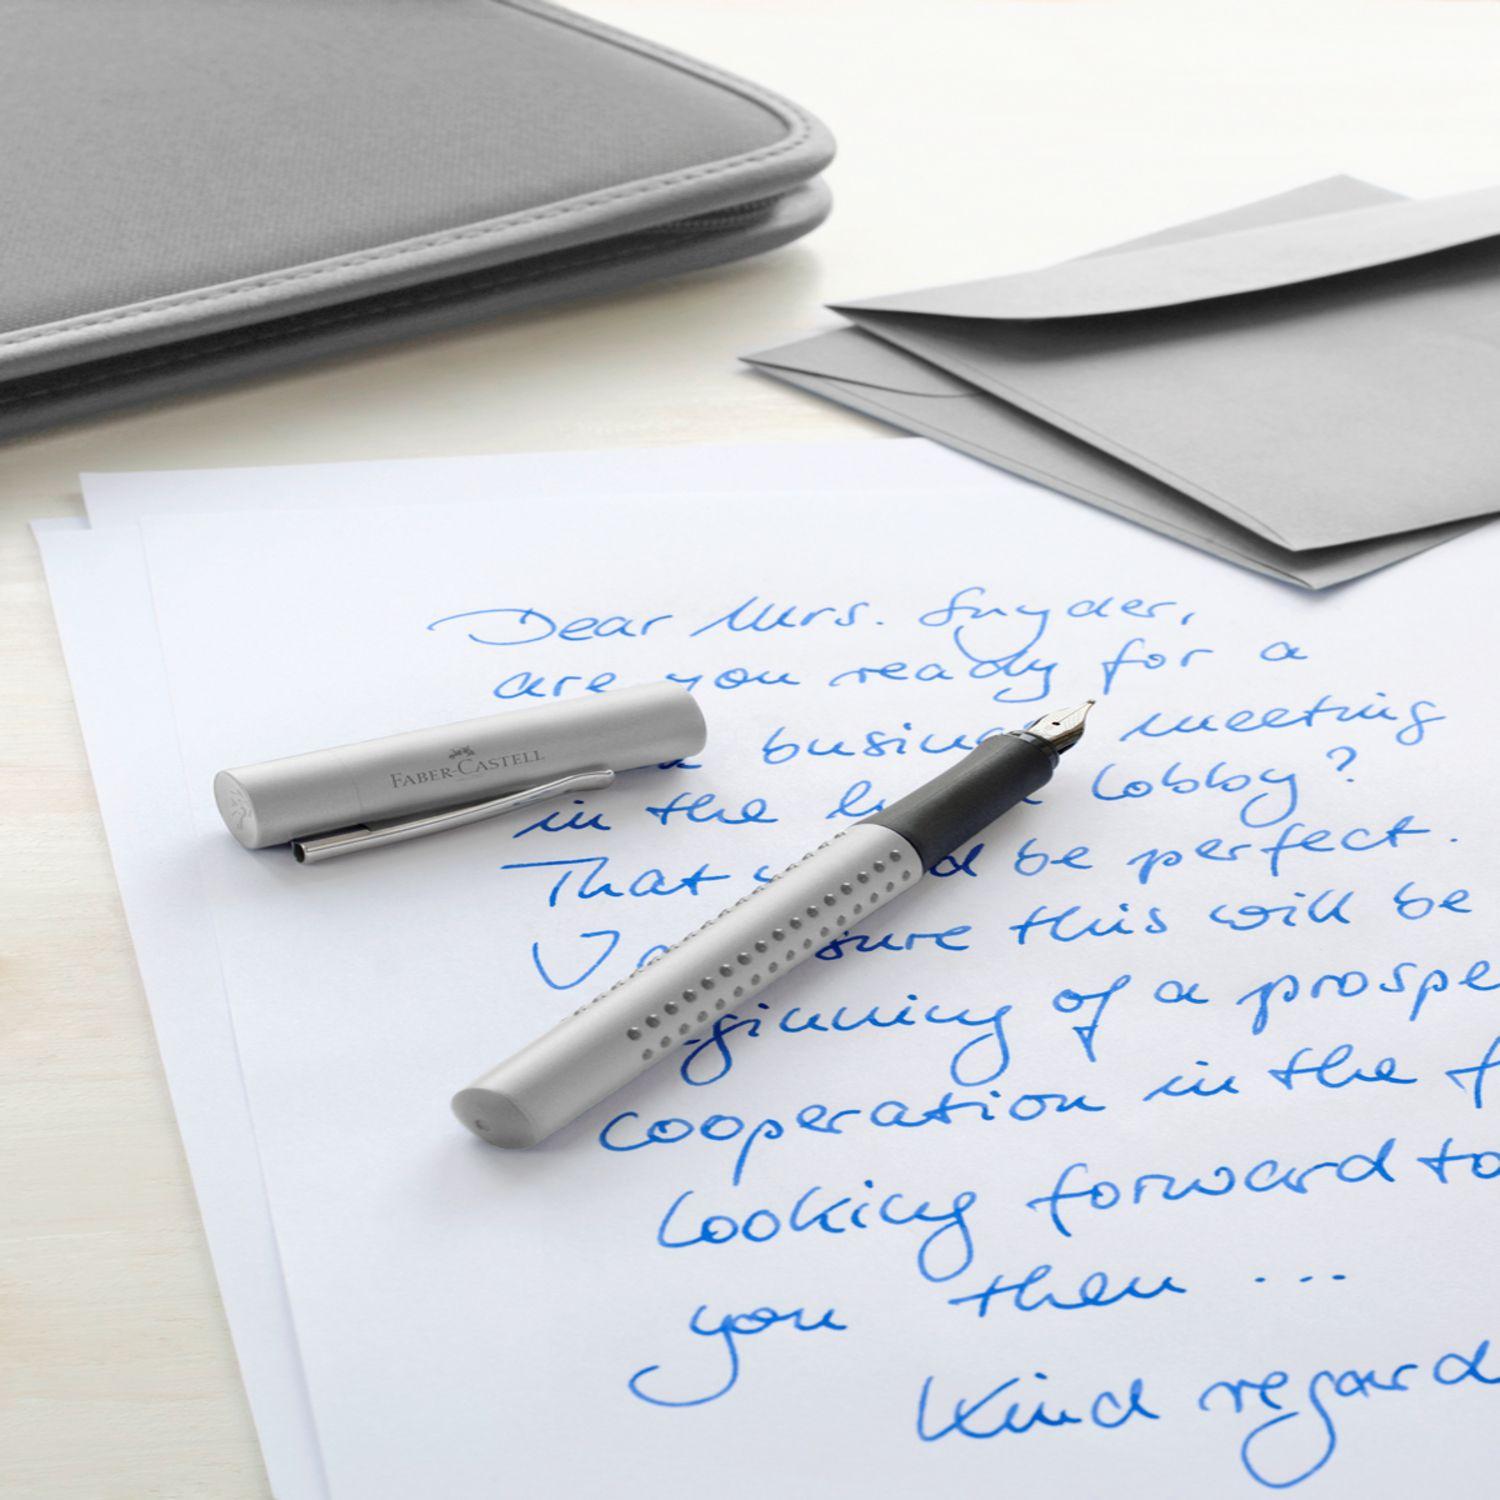 Dear Mrs. Snyder,
are you ready for a
business meeting
in the lobby?
That be perfect.
sure this will be
ginning of a prospe
cooperation in the f
looking forward to
you then ...
Kind regard
FABER-CASTELL